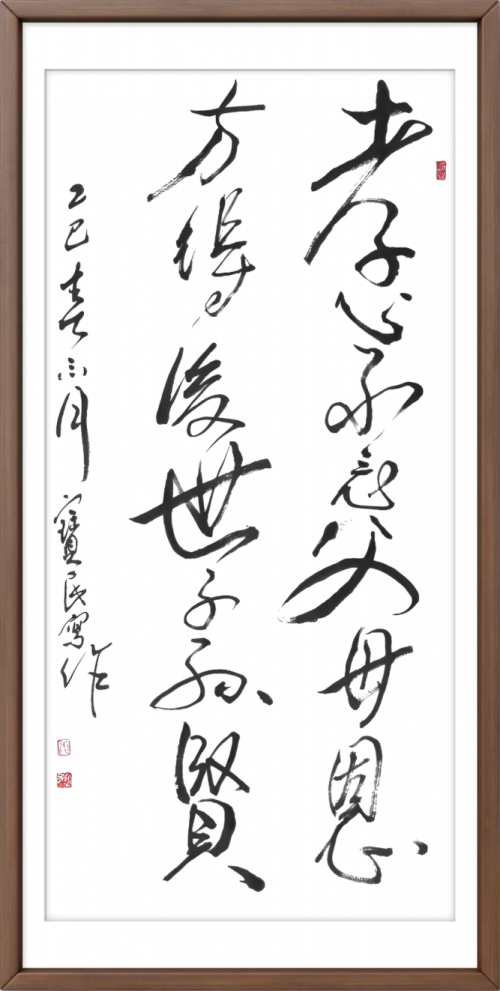 孝心不忘父母恩
方得后世子孙賢
乙巳春六月寶民寫作